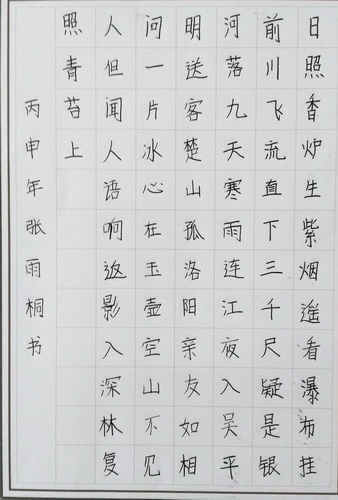 日照香炉生紫烟遥看瀑布挂
前川飞流直下三千尺疑是银
河落九天寒雨连江夜入吴平
明送客楚山孤洛阳亲友如相
问一片冰心在玉壶空山不见
人但闻人语响返影入深林复
照青苔上
丙申年张雨桐书